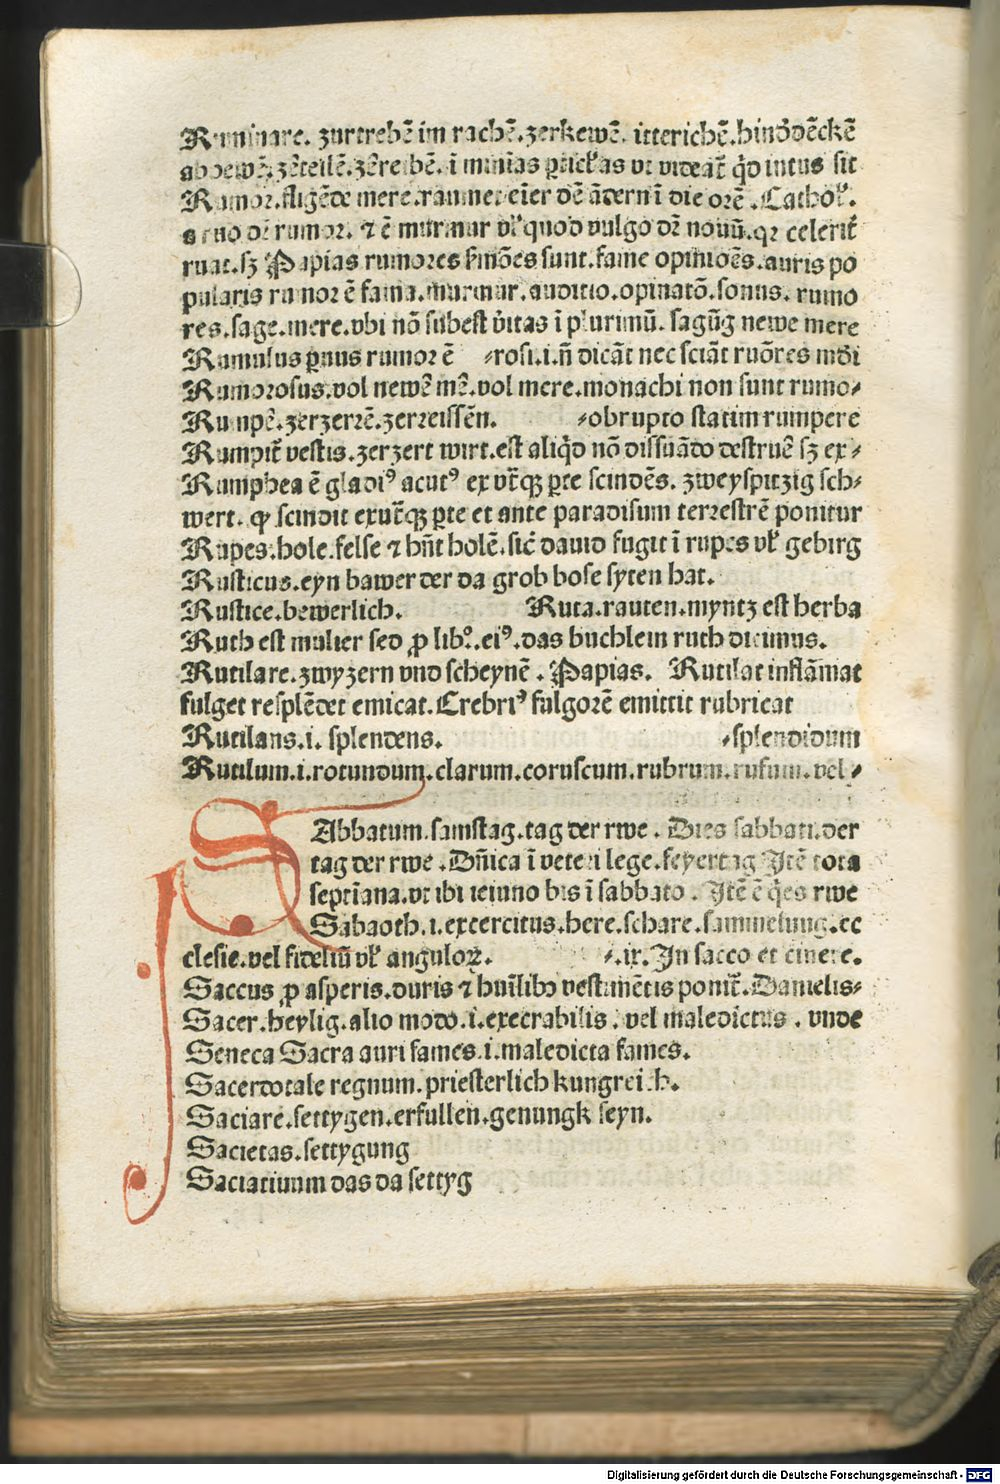 Ruminare. zurtrebē im rachē. zerkewē. itterichē. hinddēckē
zēteilē. zēreibē. ī minīas ꝑticłas vt videāt ꝙd intus sit
Rumor. fligēde mere. raunet eīer dē ādern ī die orē. Cathoł.
a ruo dr̄ rumor. ⁊ ē murmur vł quod vulgo dr̄ nouū. qꝛ celerit̄
ruat. sꝫ Papias rumores sunt. fame opinioēs. auris po
pularis rumor ē fama. murmur. auditio. opinatō. sonus. rumo
res. sage. mere. vbi nō subest v̄itas ī plurimū. sagūg newe mere
Rumulus ꝑuus rumor ē ⸗rosi. i. n̄ dicāt nec sciāt ruōres mūdi
Rumorosus. vol newē mē. vol mere. monachi non sunt rumo⸗
Rumpē. zerzerrē. zerreissēn. ⸗obrupto statim rumpere
Rumpit̄ vestis. zerzert wirt. est aliqd nō dissuādo destruē sꝫ ex⸗
Rumphea ē gladiꝰ acutꝰ ex vt̄qꝫ ꝑte scindēs. zweyspitzig sch⸗
wert. ꝙ scindit ex ut̄qꝫ ꝑte et ante paradisum terrestrē ponitur
Rupes. hole. felse ⁊ hn̄t holē. sic̄ dauid fugit ī rupes vł gebirg
Rusticus. eyn bawer der da grob bose syten hat.
Rustice. bewerlich. Ruta. rauten. myntz est herba
Ruth est mulier sed ꝓ libꝰ. eiꝰ. das buchlein ruth dicimus.
Rutilare. zwyzern vnd scheynē. Papias. Rutilat inflāmat
fulget resplēdet emicat. Crebriꝰ fulgorē emittit rubricat
Rutilans. i. splendens. ⸗splendidum
Rutilum. i. rotundum. clarum. coruscum. rubrum. rufum. vel⸗
SAbbatum. samstag. tag der rwe. Dies sabbati. der
tag der rwe. Dn̄ica ī veteri lege. feyertag Itē tota
septīana. vt ibi ieiuno bis ī sabbato. Itē ē q̇es rwe
Sabaoth. i. excercitus. here. schare. sammelung. ec
clesie. vel fideliū vł anguloꝝ. ⸗.ix. In sacco et cinere.
Saccus ꝓ asperis. duris ⁊ hūilibꝫ vestimētis ponit̄. Danielis⸗
Sacer. heylig. alio modo. i. execrabilis. vel maledictus. vnde
Seneca Sacra auri fames. i. maledicta fames.
Sacerdotale regnum. priesterlich kungreich.
Saciare. settygen. erfullen. genungk seyn.
Sacietas. settygung
Saciatiuum das da settyg
Digitalisierung gefördert durch die Deutsche Forschungsgemeinschaft - DFG